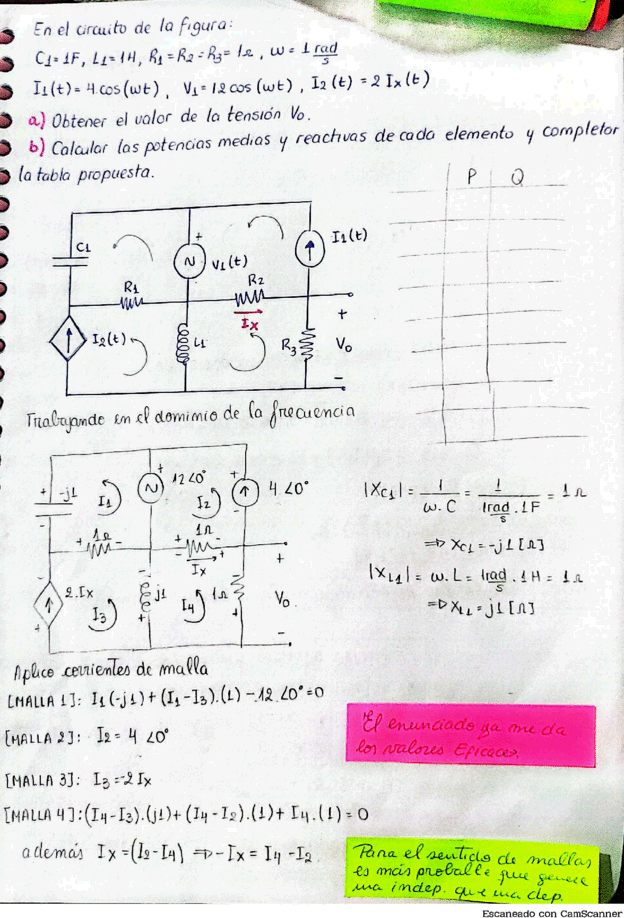 En el circuito de la figura:
C1=1F, L1=1H, R1=R2=R3=1Ω, ω=1 rad/s
I1(t)=4cos(ωt), V1=12cos(ωt), I2(t)=2Ix(t)
a) Obtener el valor de la tensión Vo.
b) Calcular las potencias medias y reactivas de cada elemento y completar
la tabla propuesta.
P Q
C1
V1(t)
I1(t)
R1
R2
Ix
I2(t)
L1
R3
+
Vo
-
Trabajando en el dominio de la frecuencia
-j1
I1
12∠0°
I2
4∠0°
1Ω
1Ω
Ix
2.Ix
I3
j1
I4
1Ω
+
Vo
-
|XC1| = 1/ω.C = 1/(1rad/s . 1F) = 1Ω
⇒ XC1=-j1[Ω]
|XL1| = ω.L = 1rad/s . 1H = 1Ω
⇒ XL1=j1[Ω]
Aplico corrientes de malla
[MALLA 1]: I1(-j1)+(I1-I3).(1)-12∠0°=0
[MALLA 2]: I2=4∠0°
[MALLA 3]: I3=-2Ix
[MALLA 4]:(I4-I3).(j1)+(I4-I2).(1)+I4.(1)=0
además Ix=(I2-I4) ⇒ -Ix=I4-I2
El enunciado ya me da
los valores Eficaces.
Para el sentido de mallas
es más probable que genere
una indep. que una dep.
Escaneado con CamScanner